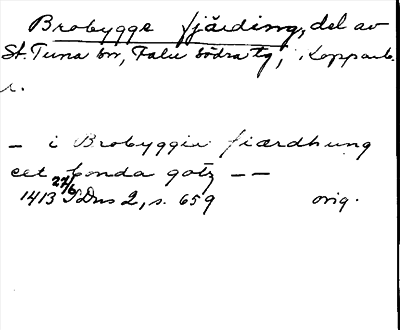 Brobygge fjärding, del av
St. Tuna sn, Falu södra tg, Kopparb.
l.
– i Brobyggia fiærdhung
eet bonda gotz – –
1413 27/6 SDns 2, s. 659 orig.